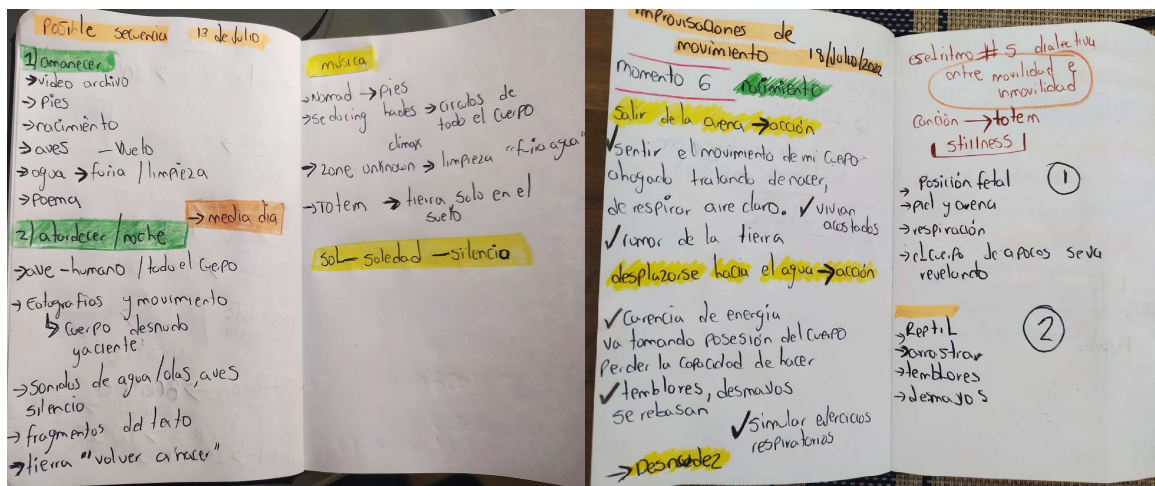 Posible secuencia 13 de Julio
1) amanecer
→ video archivo
→ Pies
→ nacimiento
→ aves — vuelo
→ agua → furia / limpieza
→ Poema
→ media dia
2) atardecer / noche
→ ave - humano / todo el cuerpo
→ Fotografias y movimiento
↳ cuerpo desnudo
yaciente
→ Sonidos de agua/olas, aves
silencio
→ fragmentos del texto
→ tierra "volver a nacer"
música
→ Nomad → Pies
→ Seducing hades → circulos de
todo el cuerpo
climax
→ Zone unknown → limpieza "furia agua"
→ Totem → tierra solo en el
suelo
SOL — soledad — silencio
improvisaciones de
movimiento 18/Julio/2022
momento 6 nacimiento
Salir de la arena → acción
✓ sentir el movimiento de mi cuerpo
ahogado tratando de nacer,
de respirar aire claro. ✓ vivian
acostados
✓ rumor de la tierra
desplazarse hacia el agua → acción
✓ Carencia de energía
va tomando posesión del cuerpo
Perder la capacidad de hacer
✓ temblores, desmayos
se rebasan
✓ simular ejercicios
respiratorios
→ Desnudez
es el ritmo # 5 dialectiva
entre movilidad e
inmovilidad
Canción → totem
stillness
→ Posición fetal 1
→ piel y arena
→ respiración
→ el cuerpo de apocos se va
revelando
→ Reptil 2
→ arrostrar
→ temblores
→ desmayos